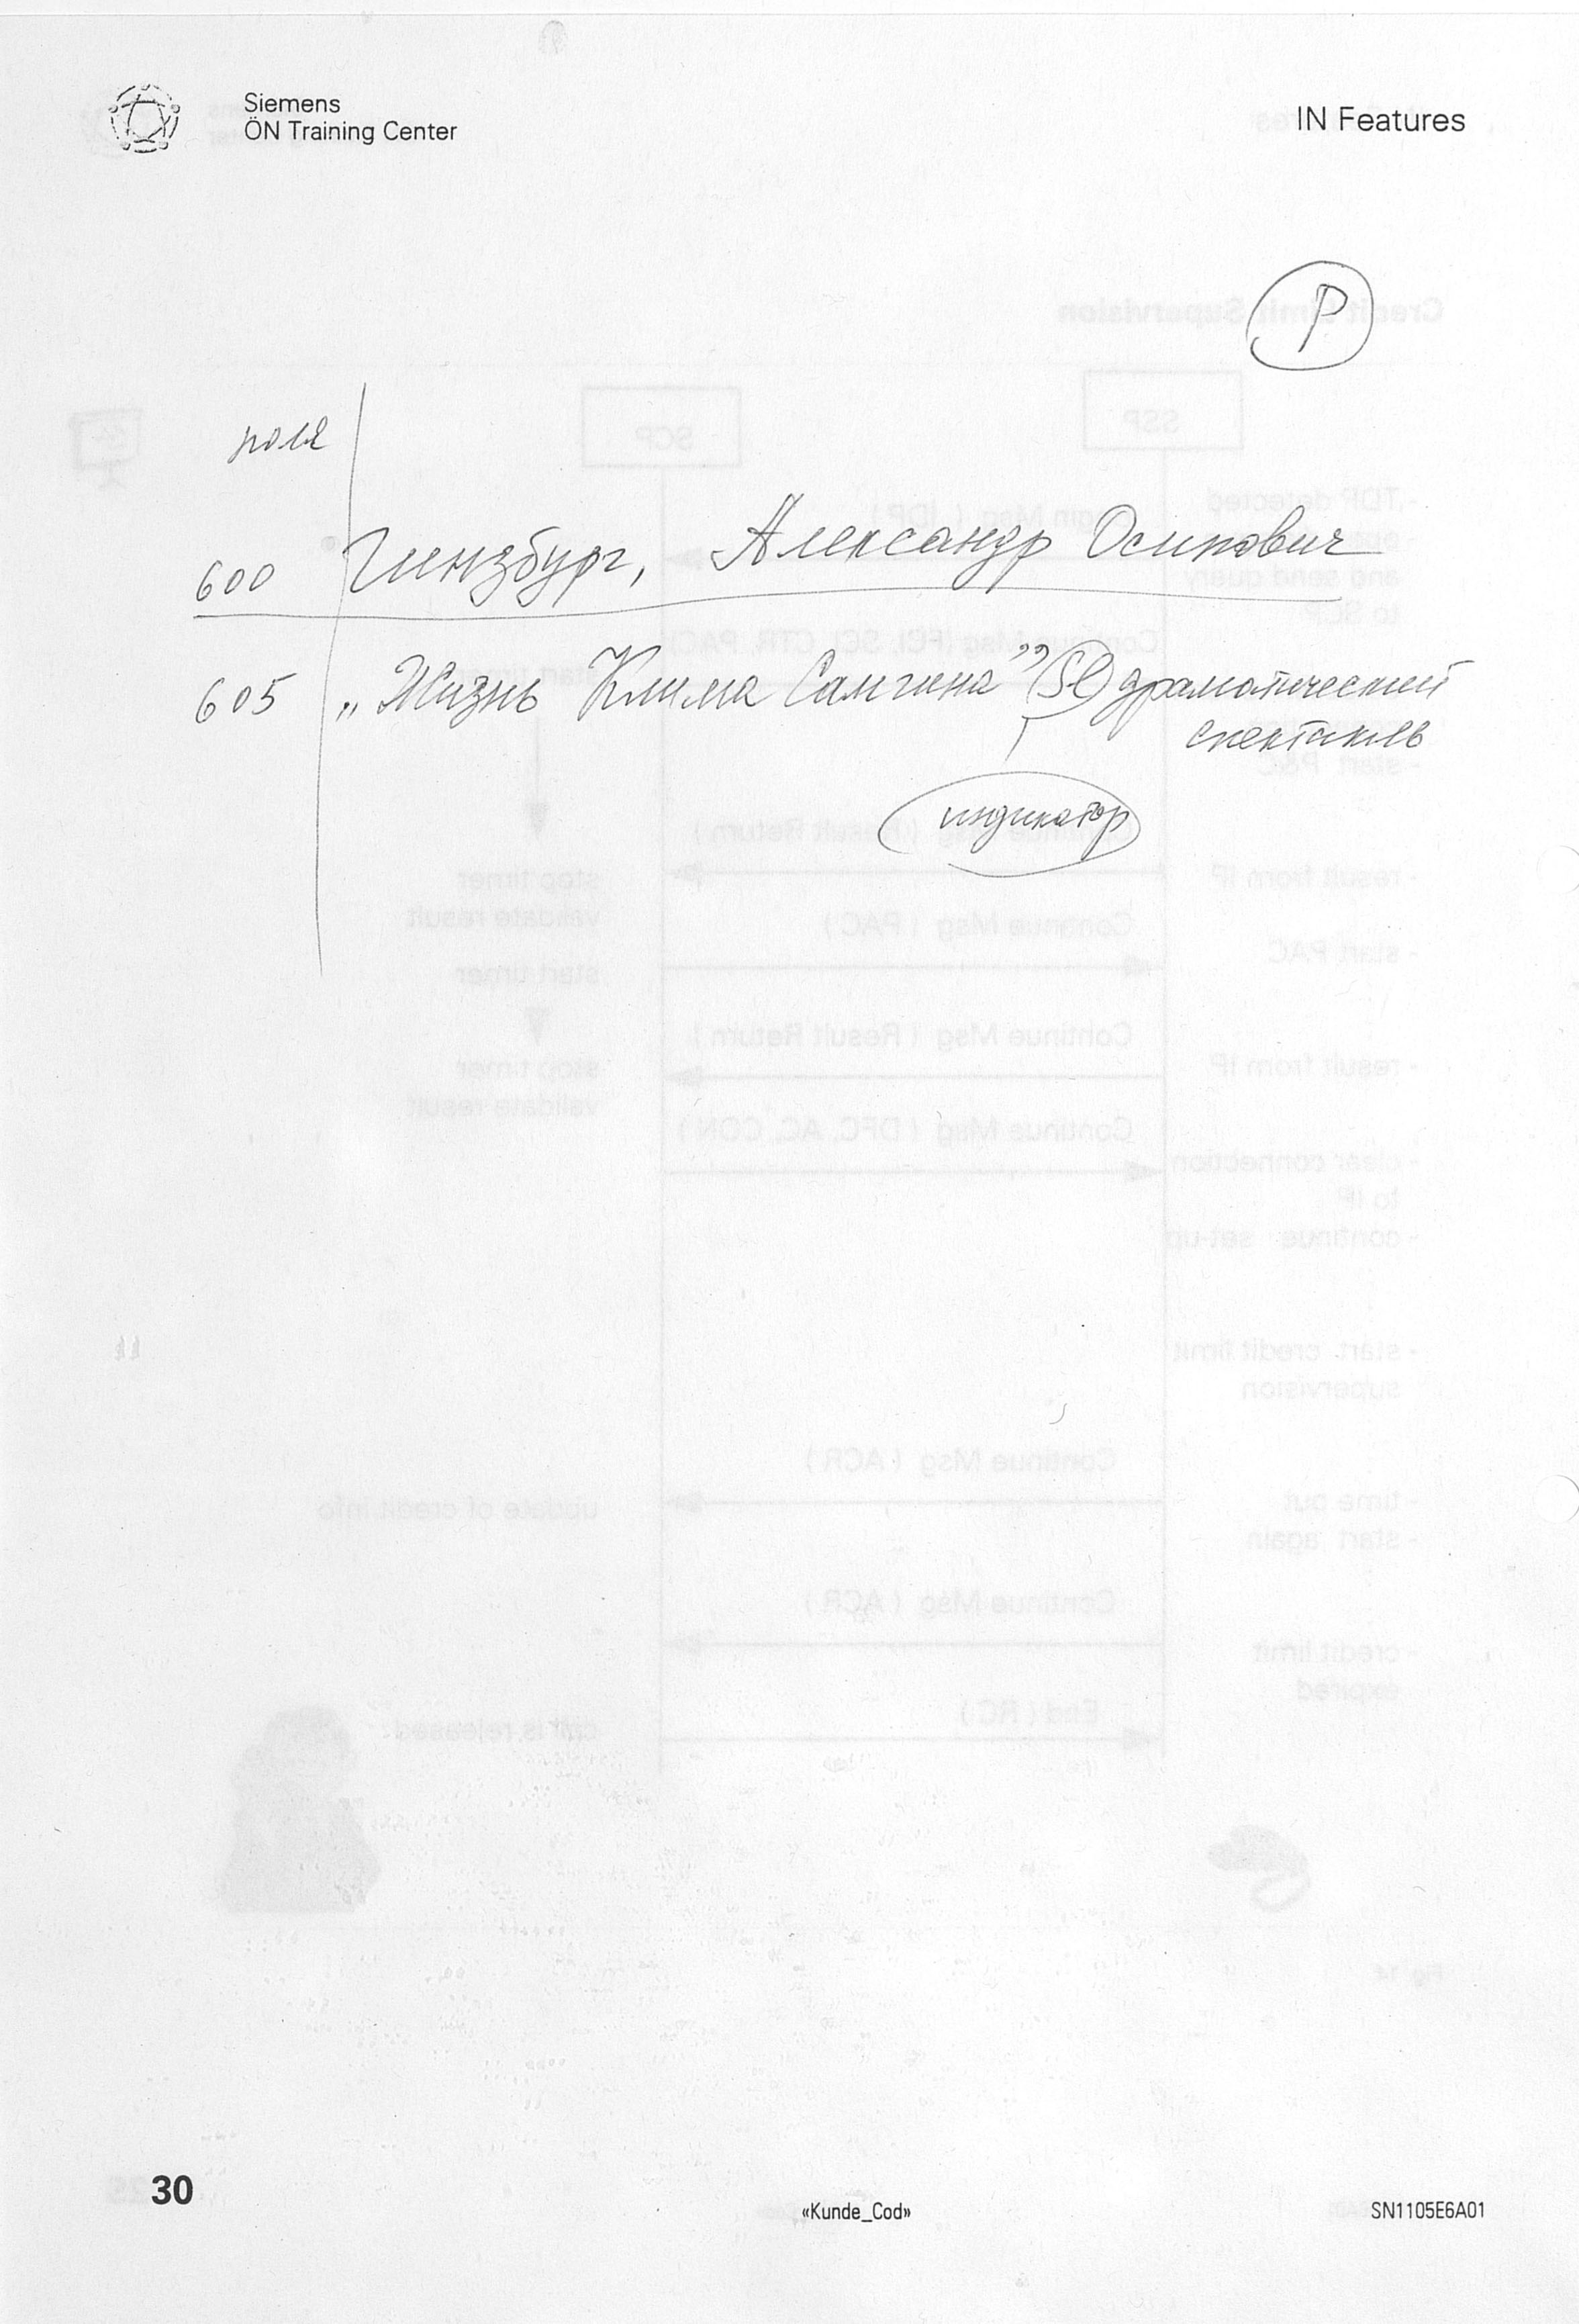 Siemens
ÖN Training Center
IN Features
P
поля
600 Гинзбург, Александр Осипович
605 „Жизнь Клима Самгина” драматический
спектакль
индикатор
30
«Kunde_Cod»
SN1105E6A01